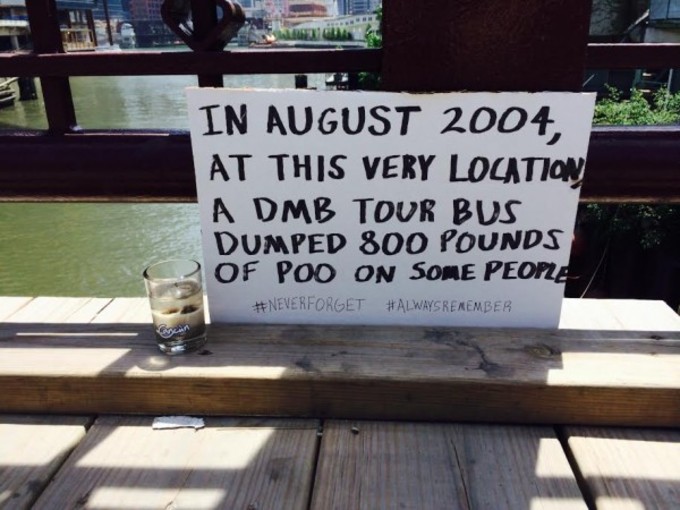 IN AUGUST 2004,
AT THIS VERY LOCATION
A DMB TOUR BUS
DUMPED 800 POUNDS
OF POO ON SOME PEOPLE
#NEVERFORGET #ALWAYSREMEMBER
Cancun